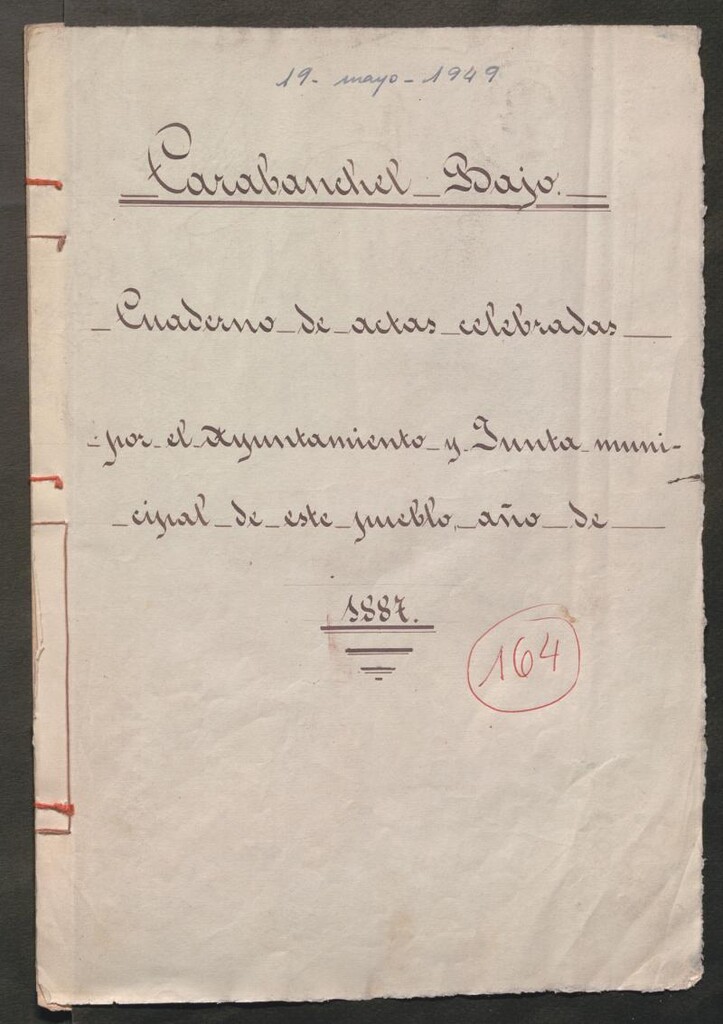 19 - mayo - 1949
Carabanchel Bajo.
Cuaderno de actas celebradas
por el Ayuntamiento y Junta muni-
cipal de este pueblo, año de
1887.
164